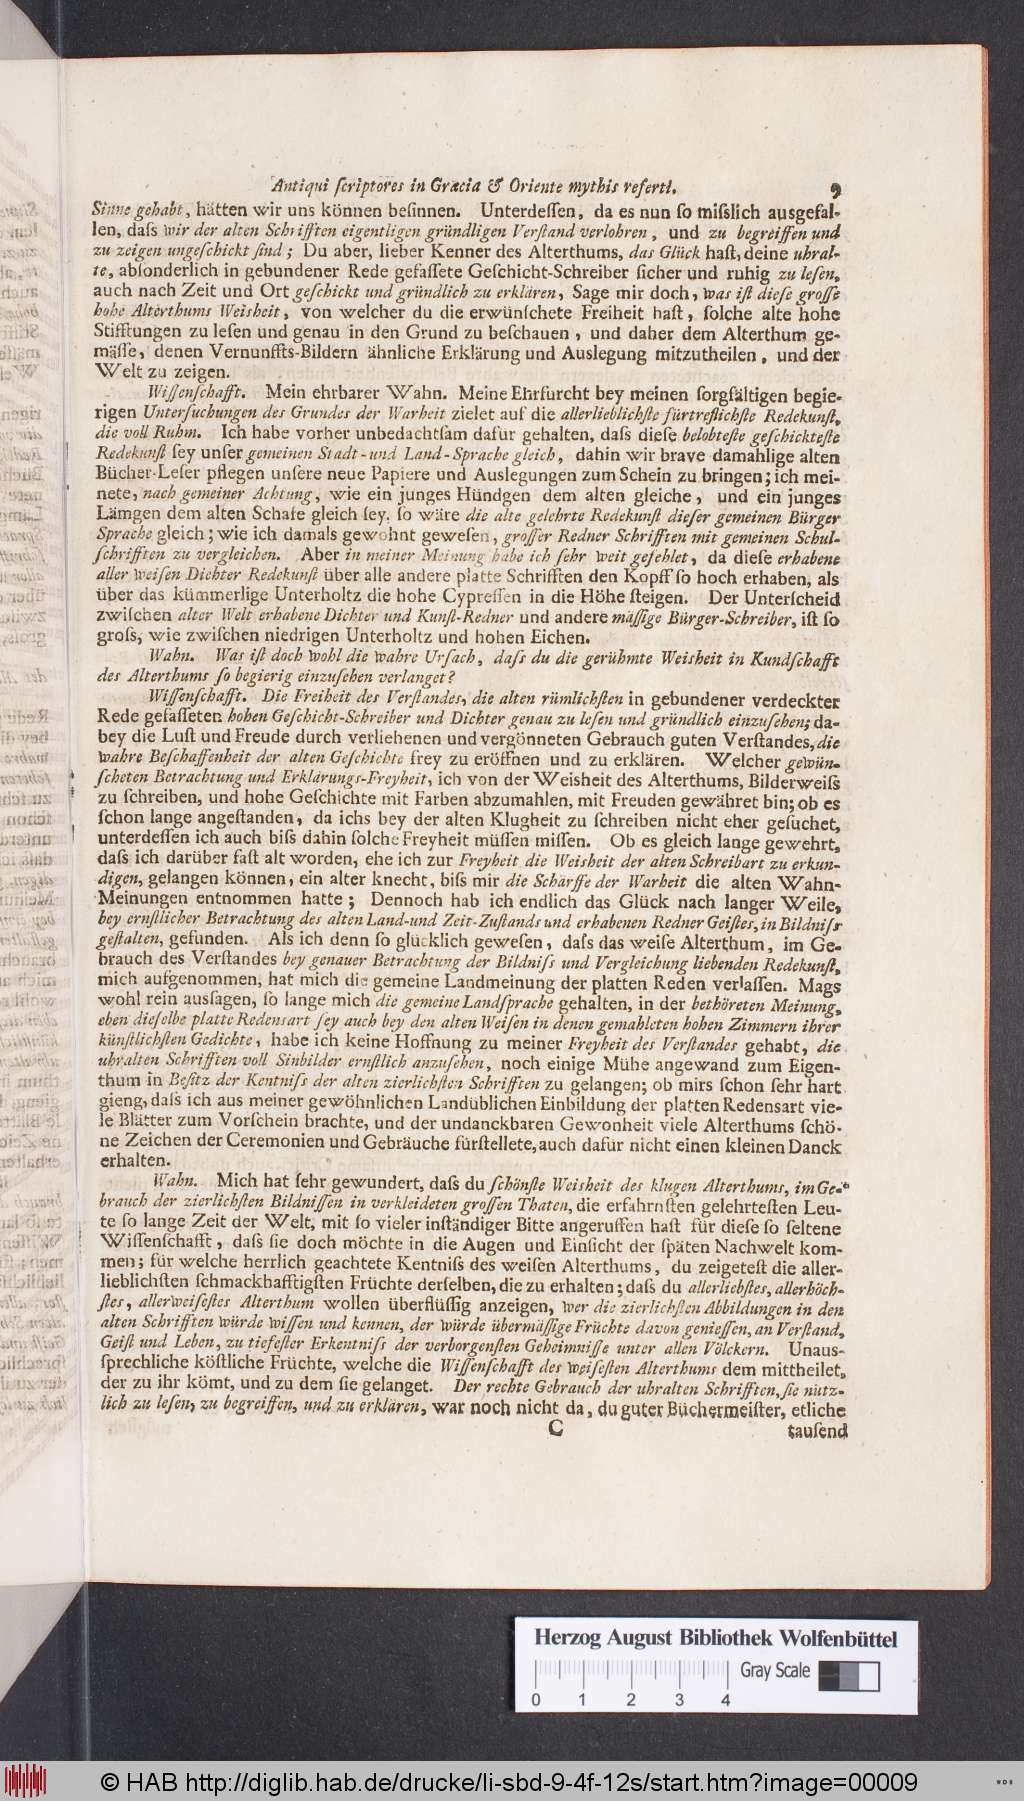 Antiqui ſcriptores in Græcia & Oriente mythis referti. 9
Sinne gehabt, hätten wir uns können beſinnen. Unterdeſſen, da es nun ſo miſslich ausgefal-
len, daſs wir der alten Schrifften eigentligen gründligen Verſtand verlohren, und zu begreiffen und
zu zeigen ungeſchickt ſind; Du aber, lieber Kenner des Alterthums, das Glück haſt, deine uhral-
te, abſonderlich in gebundener Rede gefaſſete Geſchicht-Schreiber ſicher und ruhig zu leſen,
auch nach Zeit und Ort geſchickt und gründlich zu erklären, Sage mir doch, was iſt dieſe groſſe
hohe Alterthums Weisheit, von welcher du die erwünſchete Freiheit haſt, ſolche alte hohe
Stifftungen zu leſen und genau in den Grund zu beſchauen, und daher dem Alterthum ge-
mäſſe, denen Vernunffts-Bildern ähnliche Erklärung und Auslegung mitzutheilen, und der
Welt zu zeigen.
Wiſſenſchafft. Mein ehrbarer Wahn. Meine Ehrfurcht bey meinen ſorgfältigen begie-
rigen Unterſuchungen des Grundes der Warheit zielet auf die allerlieblichſte fürtreflichſte Redekunſt,
die voll Ruhm. Ich habe vorher unbedachtſam dafür gehalten, daſs dieſe belobteſte geſchickteſte
Redekunſt ſey unſer gemeinen Stadt-und Land-Sprache gleich, dahin wir brave damahlige alten
Bücher-Leſer pflegen unſere neue Papiere und Auslegungen zum Schein zu bringen; ich mei-
nete, nach gemeiner Achtung, wie ein junges Hündgen dem alten gleiche, und ein junges
Lämgen dem alten Schafe gleich ſey, ſo wäre die alte gelehrte Redekunſt dieſer gemeinen Bürger
Sprache gleich; wie ich damals gewohnt geweſen, groſſer Redner Schrifften mit gemeinen Schul-
ſchrifften zu vergleichen. Aber in meiner Meinung habe ich ſehr weit gefehlet, da dieſe erhabene
aller weiſen Dichter Redekunſt über alle andere platte Schrifften den Kopff ſo hoch erhaben, als
über das kümmerlige Unterholtz die hohe Cypreſſen in die Höhe ſteigen. Der Unterſcheid
zwiſchen alter Welt erhabene Dichter und Kunſt-Redner und andere mäſſige Bürger-Schreiber, iſt ſo
groſs, wie zwiſchen niedrigen Unterholtz und hohen Eichen.
Wahn. Was iſt doch wohl die wahre Urſach, daſs du die gerühmte Weisheit in Kundſchafft
des Alterthums ſo begierig einzuſehen verlanget?
Wiſſenſchafft. Die Freiheit des Verſtandes, die alten rümlichſten in gebundener verdeckter
Rede gefaſſeten hohen Geſchicht-Schreiber und Dichter genau zu leſen und gründlich einzuſehen; da-
bey die Luſt und Freude durch verliehenen und vergönneten Gebrauch guten Verſtandes, die
wahre Beſchaffenheit der alten Geſchichte frey zu eröffnen und zu erklären. Welcher gewün-
ſcheten Betrachtung und Erklärungs-Freyheit, ich von der Weisheit des Alterthums, Bilderweiſs
zu ſchreiben, und hohe Geſchichte mit Farben abzumahlen, mit Freuden gewähret bin; ob es
ſchon lange angeſtanden, da ichs bey der alten Klugheit zu ſchreiben nicht eher geſuchet,
unterdeſſen ich auch biſs dahin ſolche Freyheit müſſen miſſen. Ob es gleich lange gewehrt,
daſs ich darüber faſt alt worden, ehe ich zur Freyheit die Weisheit der alten Schreibart zu erkun-
digen, gelangen können, ein alter knecht, biſs mir die Schärffe der Warheit die alten Wahn-
Meinungen entnommen hatte; Dennoch hab ich endlich das Glück nach langer Weile,
bey ernſtlicher Betrachtung des alten Land-und Zeit-Zuſtands und erhabenen Redner Geiſtes, in Bildniſs
geſtalten, gefunden. Als ich denn ſo glücklich geweſen, daſs das weiſe Alterthum, im Ge-
brauch des Verſtandes bey genauer Betrachtung der Bildniſs und Vergleichung liebenden Redekunſt,
mich aufgenommen, hat mich die gemeine Landmeinung der platten Reden verlaſſen. Mags
wohl rein ausſagen, ſo lange mich die gemeine Landſprache gehalten, in der bethöreten Meinung,
eben dieſelbe platte Redensart ſey auch bey den alten Weiſen in denen gemahleten hohen Zimmern ihrer
künſtlichſten Gedichte, habe ich keine Hoffnung zu meiner Freyheit des Verſtandes gehabt, die
uhralten Schrifften voll Sinbilder ernſtlich anzuſehen, noch einige Mühe angewand zum Eigen-
thum in Beſitz der Kentniſs der alten zierlichſten Schrifften zu gelangen; ob mirs ſchon ſehr hart
gieng, daſs ich aus meiner gewöhnlichen Landüblichen Einbildung der platten Redensart vie-
le Blätter zum Vorſchein brachte, und der undanckbaren Gewonheit viele Alterthums ſchö-
ne Zeichen der Ceremonien und Gebräuche fürſtellete, auch dafür nicht einen kleinen Danck
erhalten.
Wahn. Mich hat ſehr gewundert, daſs du ſchönſte Weisheit des klugen Alterthums, im Ge-
brauch der zierlichſten Bildniſſen in verkleideten groſſen Thaten, die erfahrnſten gelehrteſten Leu-
te ſo lange Zeit der Welt, mit ſo vieler inſtändiger Bitte angeruffen haſt für dieſe ſo ſeltene
Wiſſenſchafft, daſs ſie doch möchte in die Augen und Einſicht der ſpäten Nachwelt kom-
men; für welche herrlich geachtete Kentniſs des weiſen Alterthums, du zeigeteſt die aller-
lieblichſten ſchmackhafftigſten Früchte derſelben, die zu erhalten; daſs du allerliebſtes, allerhöch-
ſtes, allerweiſeſtes Alterthum wollen überflüſſig anzeigen, wer die zierlichſten Abbildungen in den
alten Schrifften würde wiſſen und kennen, der würde übermäſſige Früchte davon genieſſen, an Verſtand,
Geiſt und Leben, zu tiefeſter Erkentniſs der verborgenſten Geheimniſſe unter allen Völckern. Unaus-
ſprechliche köſtliche Früchte, welche die Wiſſenſchafft des weiſeſten Alterthums dem mittheilet,
der zu ihr kömt, und zu dem ſie gelanget. Der rechte Gebrauch der uhralten Schrifften, ſie nutz-
lich zu leſen, zu begreiffen, und zu erklären, war noch nicht da, du guter Büchermeiſter, etliche
C tauſend
Herzog August Bibliothek Wolfenbüttel
Gray Scale
0 1 2 3 4
© HAB http://diglib.hab.de/drucke/li-sbd-9-4f-12s/start.htm?image=00009